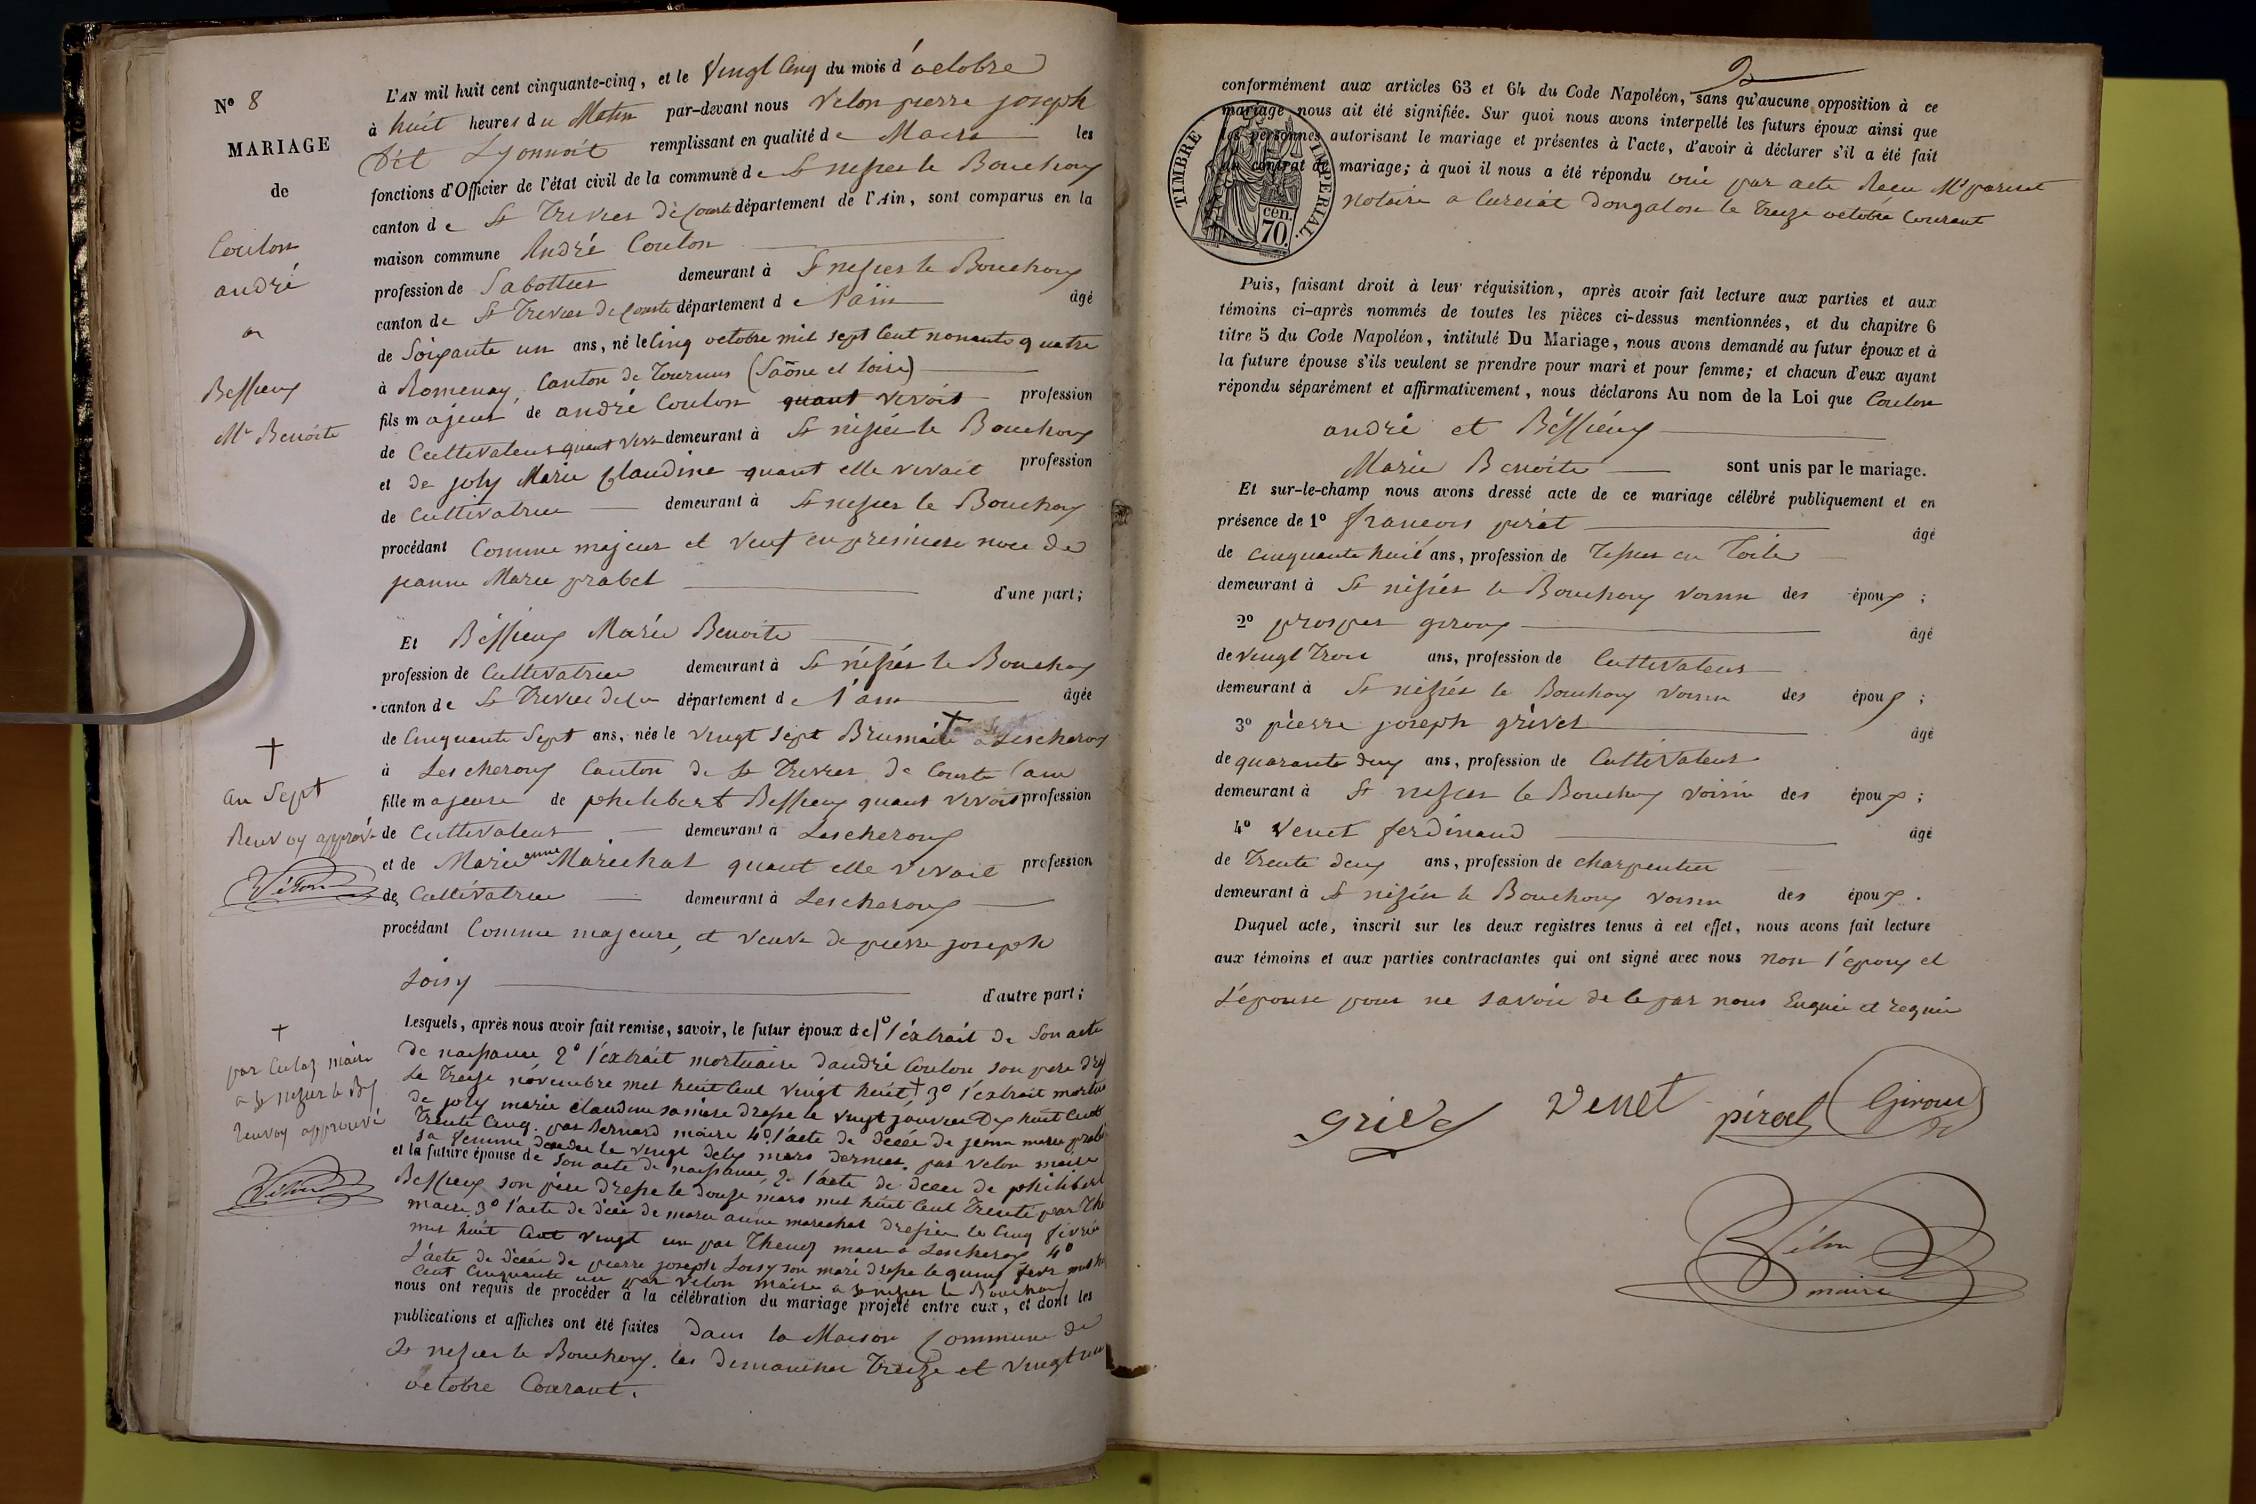 Nº 8
MARIAGE
de
Coulon
andré
a
Bessieux
Mie Benoite
L'AN mil huit cent cinquante-cinq, et le Vingt Cinq du mois d'octobre
à huit heures du Matin par-devant nous Velon pierre joseph
dit Lyonnois remplissant en qualité de Maire les
fonctions d'Officier de l'état civil de la commune de St nisier le Bouchoux
canton de St Trivier de Courte département de l'Ain, sont comparus en la
maison commune André Coulon
profession de Sabottier demeurant à St nisier le Bouchoux
canton de St Trivier de Courte département de l'ain âgé
de Soixante un ans, né le Cinq octobre mil sept Cent nonante quatre
à Romenay, Canton de Tournus (Saône et loire)
fils majeur de andré Coulon quant vivoit profession
de Cultivateur quant vivoit demeurant à St nisier le Bouchoux
et de joly Marie Claudine quant elle vivait profession
de Cultivatrice demeurant à St nisier le Bouchoux
procédant Comme majeur et veuf en premiere noce de
jeanne Marie prabel d'une part;
Et Béssieux Marie Benoite
profession de Cultivatrice demeurant à St nisier le Bouchoux
canton de St Trivier de Cou département de l'ain âgée
de Cinquante Sept ans, née le vingt sept Brumaire + a Lescheroux
à Lescheroux Canton de St Trivier de Courte (ain
fille majeure de philibert Bessieux quant vivoit profession
de Cultivateur demeurant à Lescheroux
et de Marie anne Marechal quant elle vivait profession
de Cultivatrice demeurant à Lescheroux
procédant Comme majeure, et veuve de pierre joseph
Loisy d'autre part;
+
an Sept
Renvoy approuvé
Vélon
Lesquels, après nous avoir fait remise, savoir, le futur époux de 1º l'éxtrait de Son acte
de naissance 2º l'éxtrait mortuaire d'andré Coulon son pere
Le Treize novembre mil huit Cent vingt huit + 3º l'éxtrait
de joly marie claudine sa mere dressé le vingt janvier Dix huit Cent
Trente Cinq. par Bernard maire 4º l'acte de décée de jeanne marie
sa femme décédée le vingt deux mars dernier. par velon maire
et la future épouse de Son acte de naissance, 2º l'acte de décée de philibert
Bessieux son père dressé le douze mars mil huit Cent Trente par
maire, 3º l'acte de décée de marie anne marechal dressée le Cinq
mil huit Cent vingt un par maire a Lescheroux 4º
L'acte de décée de pierre joseph Loisy son mari dressé le quinze
Cent Cinquante un par velon maire a St nisier le Bouchoux
nous ont requis de procéder à la célébration du mariage projeté entre eux, et dont les
publications et affiches ont été faites Dans la Maison Commune de
St nisier le Bouchoux. les dimanches Treize et vingt un
octobre Courant.
+
par maire
a St nisier le
renvoy approuvé
Vélon
2
conformément aux articles 63 et 64 du Code Napoléon, sans qu'aucune opposition à ce
mariage nous ait été signifiée. Sur quoi nous avons interpellé les futurs époux ainsi que
les personnes autorisant le mariage et présentes à l'acte, d'avoir à déclarer s'il a été fait
un contrat de mariage; à quoi il nous a été répondu oui par acte Recu Me parent
notaire a Curciat Dongalon le Treize octobre Courant
TIMBRE IMPERIAL.
70 cen.
Puis, faisant droit à leur réquisition, après avoir fait lecture aux parties et aux
témoins ci-après nommés de toutes les pièces ci-dessus mentionnées, et du chapitre 6
titre 5 du Code Napoléon, intitulé Du Mariage, nous avons demandé au futur époux et à
la future épouse s'ils veulent se prendre pour mari et pour femme; et chacun d'eux ayant
répondu séparément et affirmativement, nous déclarons Au nom de la Loi que Coulon
andré et Béssieux
Marie Benoite sont unis par le mariage.
Et sur-le-champ nous avons dressé acte de ce mariage célébré publiquement et en
présence de 1º françois pirat âgé
de Cinquante huit ans, profession de Tissier en Toile
demeurant à St nisier le Bouchoux voisin des époux;
2º prosper giroux âgé
de vingt Trois ans, profession de Cultivateur
demeurant à St nisier le Bouchoux voisin des époux;
3º pierre joseph grivet âgé
de quarante deux ans, profession de Cultivateur
demeurant à St nisier le Bouchoux voisin des époux;
4º venet ferdinand âgé
de Trente deux ans, profession de charpentier
demeurant à St nizier le Bouchoux voisin des époux.
Duquel acte, inscrit sur les deux registres tenus à cet effet, nous avons fait lecture
aux témoins et aux parties contractantes qui ont signé avec nous non l'époux et
L'épouse pour ne savoir de le par nous Enquis et requis
grivet Venet pirat Giroux
Vélon
maire